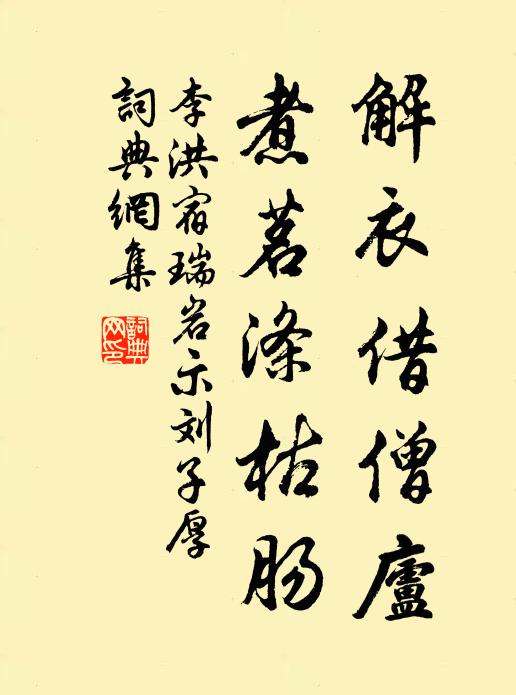 解衣借僧廬
煮茗涤枯肠
李洪宿瑞岩示刘子厚
詞典網集
詞典網印